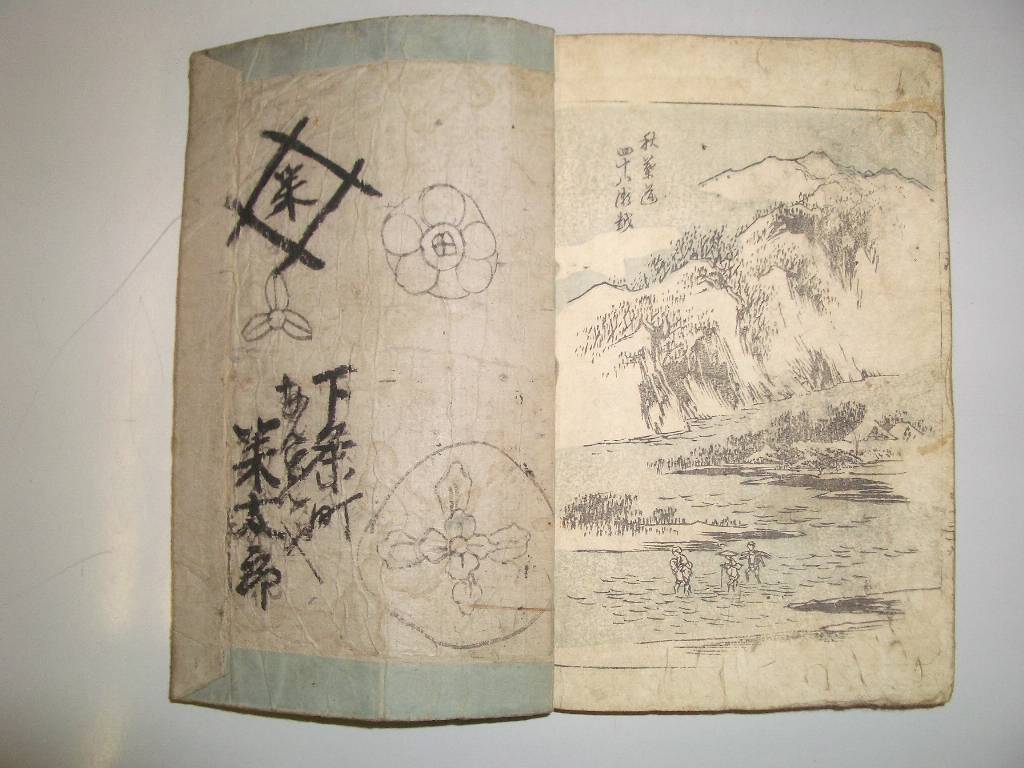 秋葉道
四十八瀬越
田
米
下条町
米太郎